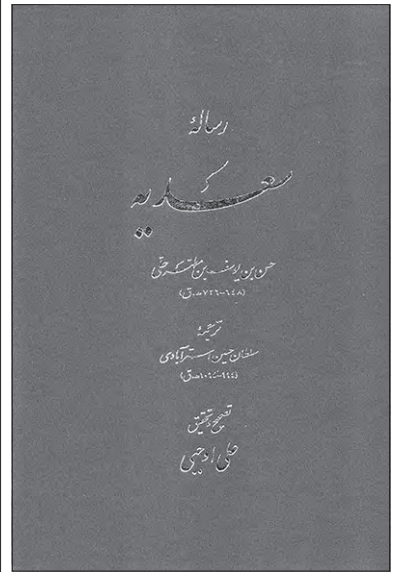 رسالهٔ
سعدیه
حسن بن یوسف بن مطهر حلّی
(۶۴۸-۷۲۶ ه.ق)
ترجمهٔ
سلطان حسین استرآبادی
تصحیح و تحقیق
علی اوجبی